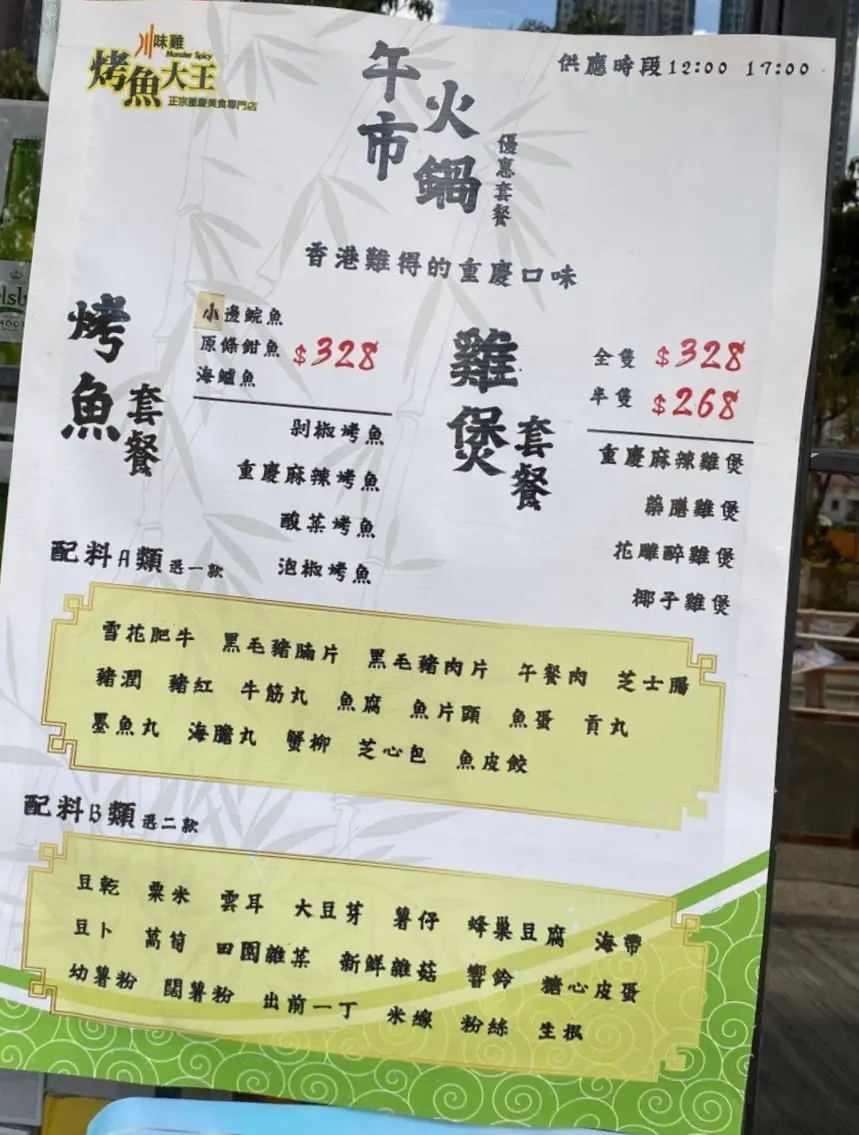 川味雞
Monder Spicy
烤魚大王
正宗重慶美食專門店
供應時段12:00 17:00
午市
火鍋
優惠套餐
香港難得的重慶口味
烤魚套餐
小邊鯇魚
原條鉗魚 $328
海鱸魚
剁椒烤魚
重慶麻辣烤魚
酸菜烤魚
泡椒烤魚
雞煲套餐
全隻 $328
半隻 $268
重慶麻辣雞煲
藥膳雞煲
花雕醉雞煲
椰子雞煲
配料A類 選一款
雪花肥牛 黑毛豬腩片 黑毛豬肉片 午餐肉 芝士腸
豬潤 豬紅 牛筋丸 魚腐 魚片頭 魚蛋 貢丸
墨魚丸 海膽丸 蟹柳 芝心包 魚皮餃
配料B類 選二款
豆乾 粟米 雲耳 大豆芽 薯仔 蜂巢豆腐 海帶
豆卜 萵筍 田園雜菜 新鮮雜菇 響鈴 糖心皮蛋
幼薯粉 闊薯粉 出前一丁 米線 粉絲 生根